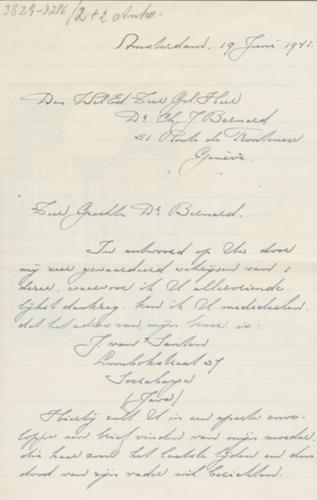 3829-3286/2+2 Antw.
Amsterdam, 19 Juni 1941.
Den Wel Ed. Zeer Gel. Heer
Dr. Ch. J. Bernard
51 Route de Frontenex
Genève.
Zeer Geachte Dr. Bernard.
In antwoord op Uw door
mij zeer gewaardeerd schrijven van 1
dezer, waarvoor ik U allervriende-
lijkst dankzeg, kan ik U mededeelen
dat het adres van mijn broer is:
J. van Santen
Lombokstraat 37
Soerabaya
(Java)
Hierbij zult U in een aparte enve-
loppe een brief vinden van mijn moeder,
die haar zoon het laatste lijden en den
dood van zijn vader wil berichten.